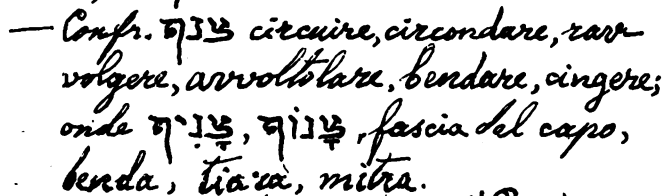 — Confr. צנף circuire, circondare, rav-
volgere, avvoltolare, bendare, cingere;
onde צָנוֹף, צָנִיף, fascia del capo,
benda, tiara, mitra.